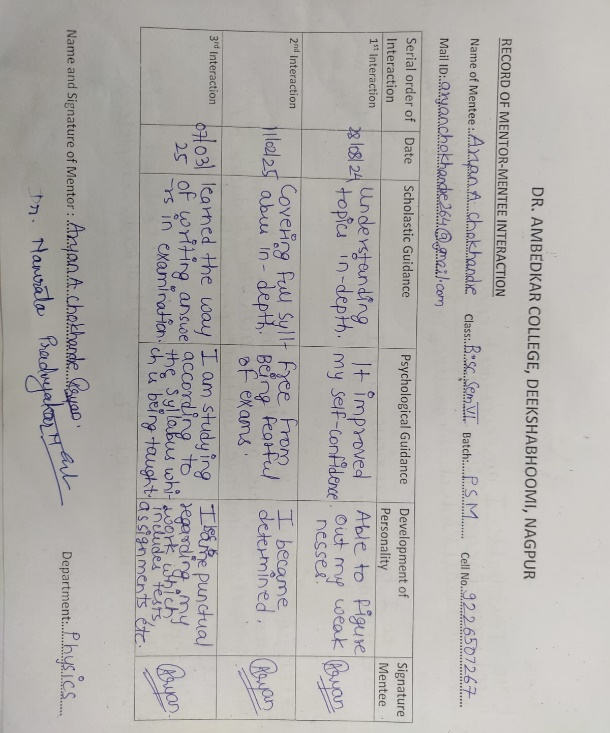 DR. AMBEDKAR COLLEGE, DEEKSHABHOOMI, NAGPUR
RECORD OF MENTOR-MENTEE INTERACTION
Name of Mentee : Aryan A. Chokhandre Class: B.sc. Sem VI Batch: PSM Cell No. 9226507267
Mail ID: aryanchokhandre264@gmail.com
Serial order of Interaction Date Scholastic Guidance Psychological Guidance Development of Personality Signature Mentee
1st Interaction 28/08/24
Understanding
topics in-depth.
It improved
my self-confidence.
Able to figure
out my weak
nesses.
Aryan
2nd Interaction 11/02/25
Covering full syll-
abus in-depth.
Free from
Being fearful
of exams.
I became
determined.
Aryan
3rd Interaction 07/03/
25
learned the way
of writing answe
-rs in examination.
I am studying
according to
the syllabus whi-
ch is being taught.
I became punctual
regarding my
work which
includes tests,
assignments etc.
Aryan
Name and Signature of Mentor : Aryan A. Chokhandre Aryan. Department: Physics
Dr. Namrata